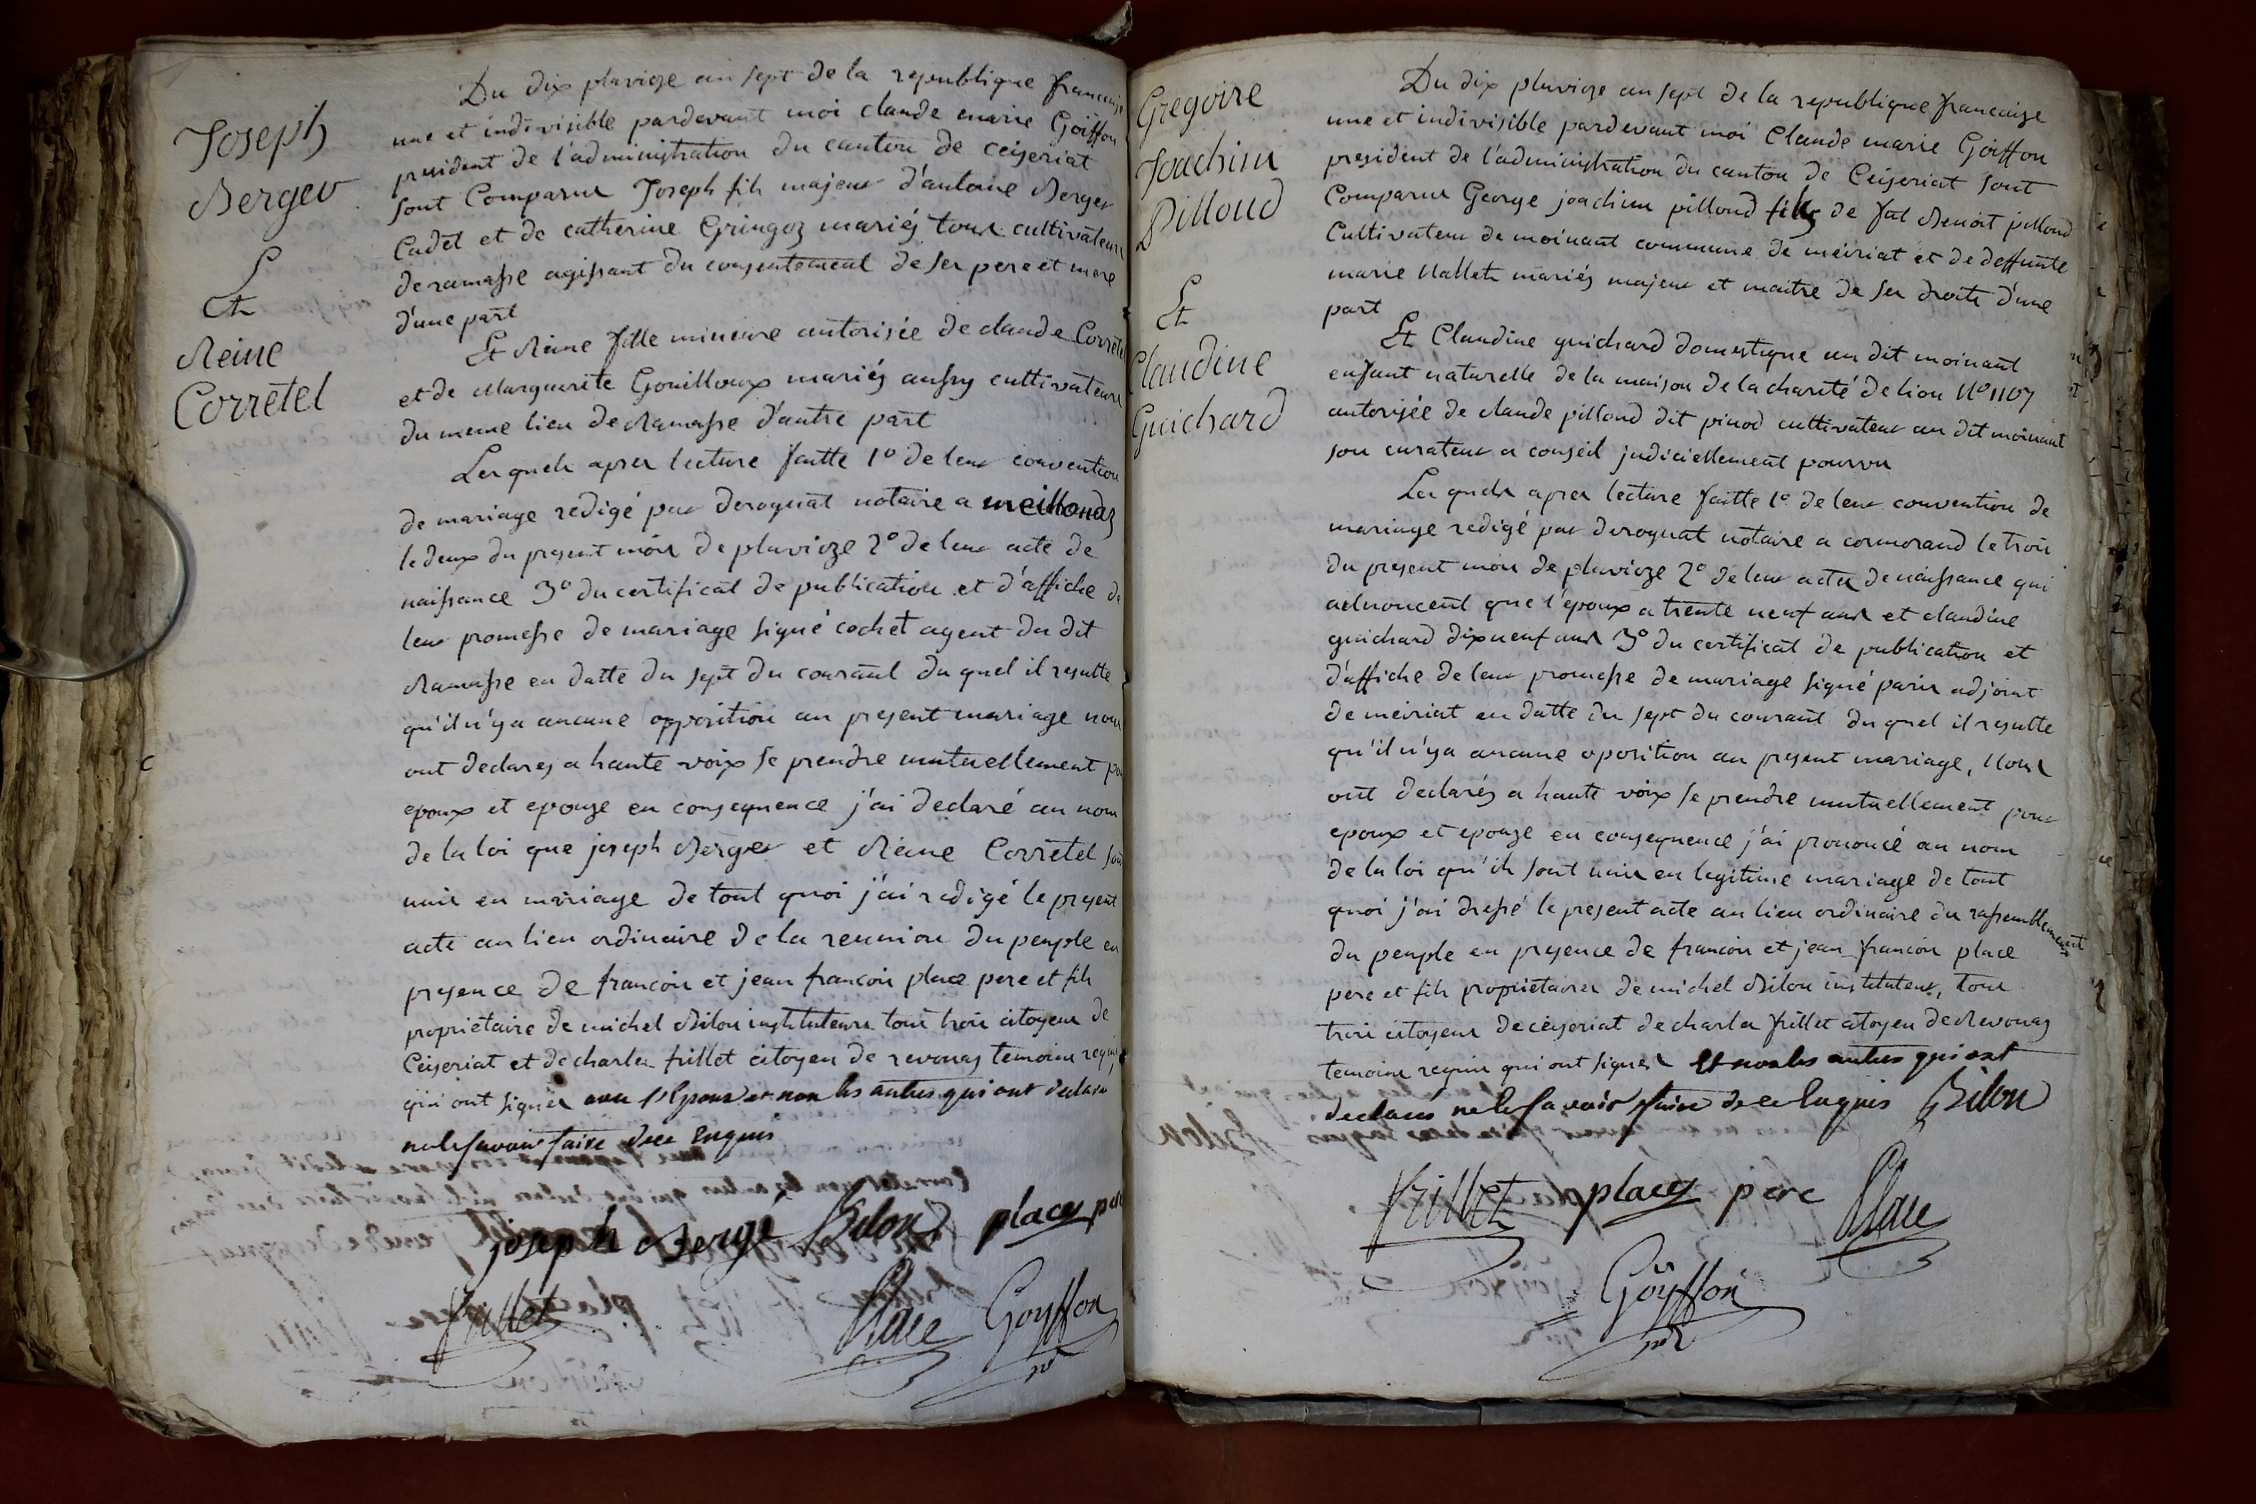 Joseph
Berger
Et
Reine
Corretel
Du dix pluvioze an sept de la republique francaise
une et indivisible pardevant moi claude marie Goiffon
president de l'administration du canton de ceizeriat
sont Comparus Joseph fils majeur d'antoine Berger
Cadet et de catherine Gringoz mariés tous cultivateurs
de ramasse agissant du consentement de ses pere et mere
d'une part
Et Reine fille mineure autorisée de claude Corretel
et de Marguerite Gouilloux mariés aussy cultivateurs
du meme lieu de Ramasse d'autre part
Lesquels apres lecture faitte 1º de leur convention
de mariage redigé par deroguat notaire a meillonaz
le deux du present mois de pluvioze 2º de leur acte de
naissance 3º du certificat de publication et d'affiche de
leur promesse de mariage signé cochet agent du dit
Ramasse en datte du sept du courant du quel il resulte
qu'il n'y a aucune opposition au present mariage nous
ont declarez a haute voix se prendre mutuellement pour
epoux et epouze en consequence j'ai declaré au nom
de la loi que joseph Berger et Reine Corretel sont
unis en mariage de tout quoi j'ai redigé le present
acte au lieu ordinaire de la reunion du peuple en
presence de francois et jean francois place pere et fils
proprietaire de michel Bilon instituteurs tous trois citoyens de
Ceizeriat et de charles frillet citoyen de revonas temoins requis
qui ont signés avec l'Epoux et non les autres qui ont declaré
ne le savoir faire de ce Enquis
joseph Bergé Bilon place pere
frillet Place Goyffon
pdt
Gregoire
Joachim
Pilloud
Et
Claudine
Guichard
Du dix pluvioze an sept de la republique francaize
une et indivisible pardevant moi Claude marie Goiffon
president de l'administration du canton de Ceizeriat sont
Comparus George joachim pilloud fils de fut Benoit pilloud
Cultivateur de moinant commune de meiriat et de deffunte
marie Nallet mariés majeur et maitre de ses droits d'une
part
Et Claudine guichard domestique au dit moinant
enfant naturelle de la maison de la chareté de lion Nº 1107
autorisée de claude pilloud dit pinod cultivateur au dit moinant
son curateur a conseil judiciellement pourvu
Lesquels apres lecture faitte 1º de leur convention de
mariage redigé par deroguat notaire a cormorand le trois
du present mois de pluvioze 2º de leur actes de naissance qui
adnoncent que l'epoux a trente neuf ans et claudine
guichard dixneuf ans 3º du certificat de publication et
d'affiche de leur promesse de mariage signé paris adjoint
de meiriat en datte du sept du courant du quel il resulte
qu'il n'y a aucune oposition au present mariage, Nous
ont declarés a haute voix se prendre mutuellement pour
epoux et epouze en consequence j'ai prononcé au nom
de la loi qu'ils sont unis en legitime mariage de tout
quoi j'ai dressé le present acte au lieu ordinaire du rassemblement
du peuple en presence de francois et jean francois place
pere et fils proprietaires de michel Bilon instituteur, tous
trois citoyens de ceyzeriat de charles frillet citoyen de Revonas
temoins requis qui ont signés et non les autres qui ont
declarés ne le savoir faire de ce Enquis Bilon
frillet place pere Place
Goÿffon
pdt